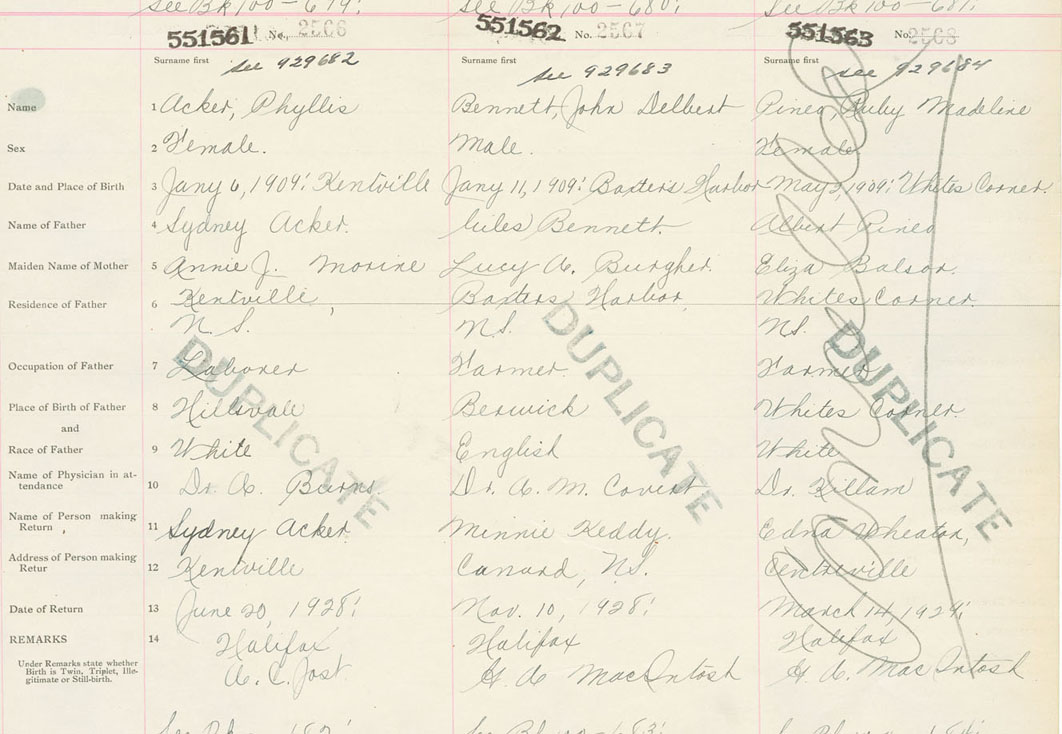 See Bk 100 - 679; See Bk 100 - 680; See Bk 100 - 681;
551561 No. 2566 551562 No. 2567 551563 No. 2568
Surname first Surname first Surname first
See 929682 See 929683 See 929684
Name 1 Acker, Phyllis Bennett, John Delbert Pineo, Ruby Madeline
Sex 2 Female. Male. Female
Date and Place of Birth 3 Jany 6, 1909; Kentville Jany 11, 1909; Baxters Harbor May 1909; Whites Corner.
Name of Father 4 Sydney Acker. Bennett Albert Pineo
Maiden Name of Mother 5 Annie J. Morine Lucy A. Burgher. Eliza Balsor.
Residence of Father 6 Kentville, Baxters Harbor, Whites Corner.
N.S. N.S. N.S.
Occupation of Father 7 Laborer Farmer. Farmer
Place of Birth of Father 8 Hillsvale Berwick Whites Corner.
and
Race of Father 9 White English White
Name of Physician in at-
tendance 10 Dr. A. Burns. Dr. A. M. Covert Dr. Killam
Name of Person making
Return 11 Sydney Acker. Minnie Keddy. Edna Wheaton,
Address of Person making
Retur 12 Kentville Canard, N.S. Centreville
Date of Return 13 June 20, 1928; Nov. 10, 1928; March 14, 1929;
REMARKS 14 Halifax Halifax Halifax
Under Remarks state whether
Birth is Twin, Triplet, Ille-
gitimate or Still-birth.
A. C. Jost. H. A. MacIntosh H. A. MacIntosh
DUPLICATE DUPLICATE DUPLICATE